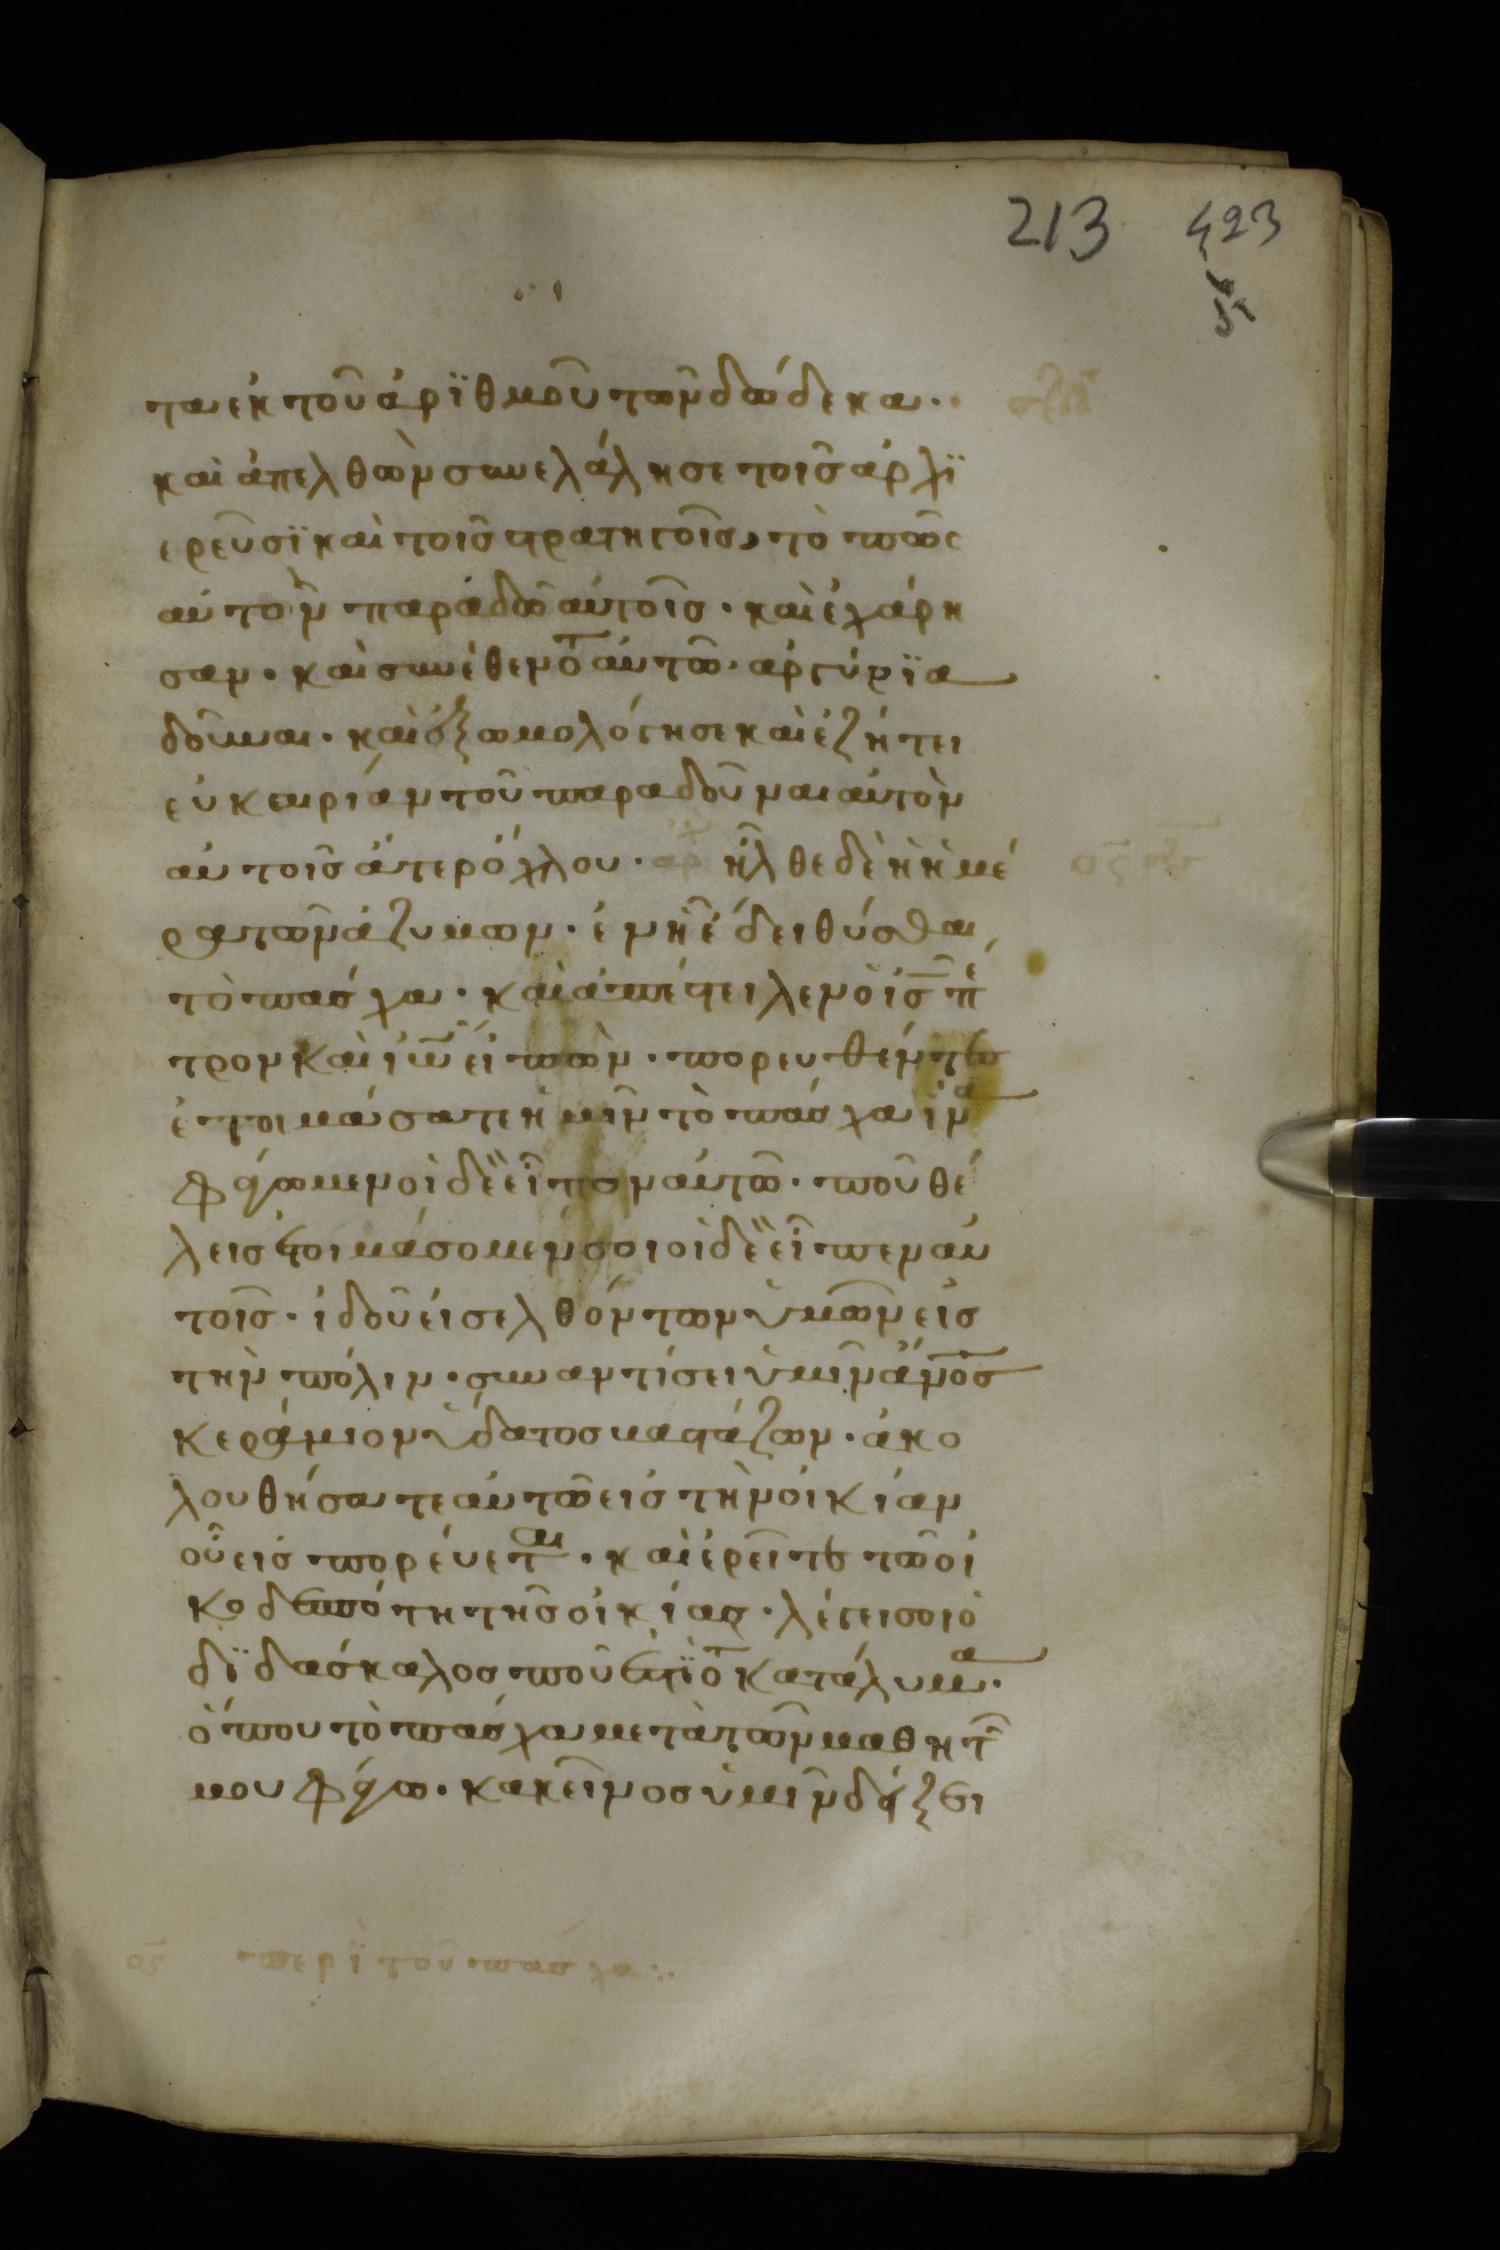 213 423
τα ἐκ τοῦ ἀρϊθμοῦ τῶν δώδεκα··
καὶ ἀπελθὼν συνελάλησε τοῖς ἀρχϊ
ερεῦσϊ καὶ τοῖς στρατηγοῖς, τὸ πῶς
αὐτὸν παραδῶ αὐτοῖς· καὶ ἐχάρη
σαν· καὶ συνέθεντο αὐτῶ· ἀργύρϊα
δοῦναι· καὶ ἐξωμολόγησε καὶ ἐζήτει
εὐκαιρίαν τοῦ παραδοῦναι αὐτὸν
αὐτοῖς ἄτερ ὄχλου· ἀρχ ἦλθε δὲ ἡ ἡμέ
ρα τῶν ἀζύμων· ἐν ἧ ἔδει θύσθαι
τὸ πάσχα· καὶ ἀπέστειλεν ὁ ις πέ
τρον καὶ ἰω εἰπὼν· πορευθέντες
ἑτοιμάσατε ἡμῖν τὸ πάσχα ἵνα
φάγωμεν οἱ δὲ εἶπον αὐτῶ· ποῦ θέ
λεις ἑτοιμάσομεν σοι ὁ δὲ εἶπεν αὐ
τοῖς· ἰδοῦ εἰσελθόντων ὑμῶν εἰς
τὴν πόλιν· συναντίσει ὑμῖν ἄνος
κεράμιον ὕδατος βαστάζων· ἀκο
λουθήσατε αὐτῶ εἰς τὴν οἰκίαν
οὗ εἰσπορεύεται· καὶ ἐρεῖτε τῶ οἰ
κοδεσπότη τῆς οἰκίας· λέγει σοι ὁ
δϊδάσκαλος ποῦ ἐστϊ τὸ κατάλυμα·
ὅπου τὸ πάσχα μετὰ τῶν μαθητῶν
μου φάγω· κακεῖνος ὑμῖν δείξει
οϛ περὶ τοῦ πάσχα